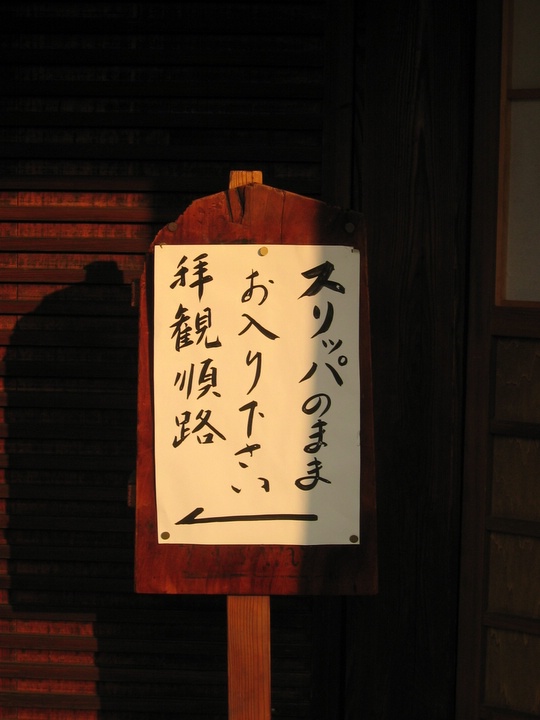 スリッパのまま
お入り下さい
拝観順路